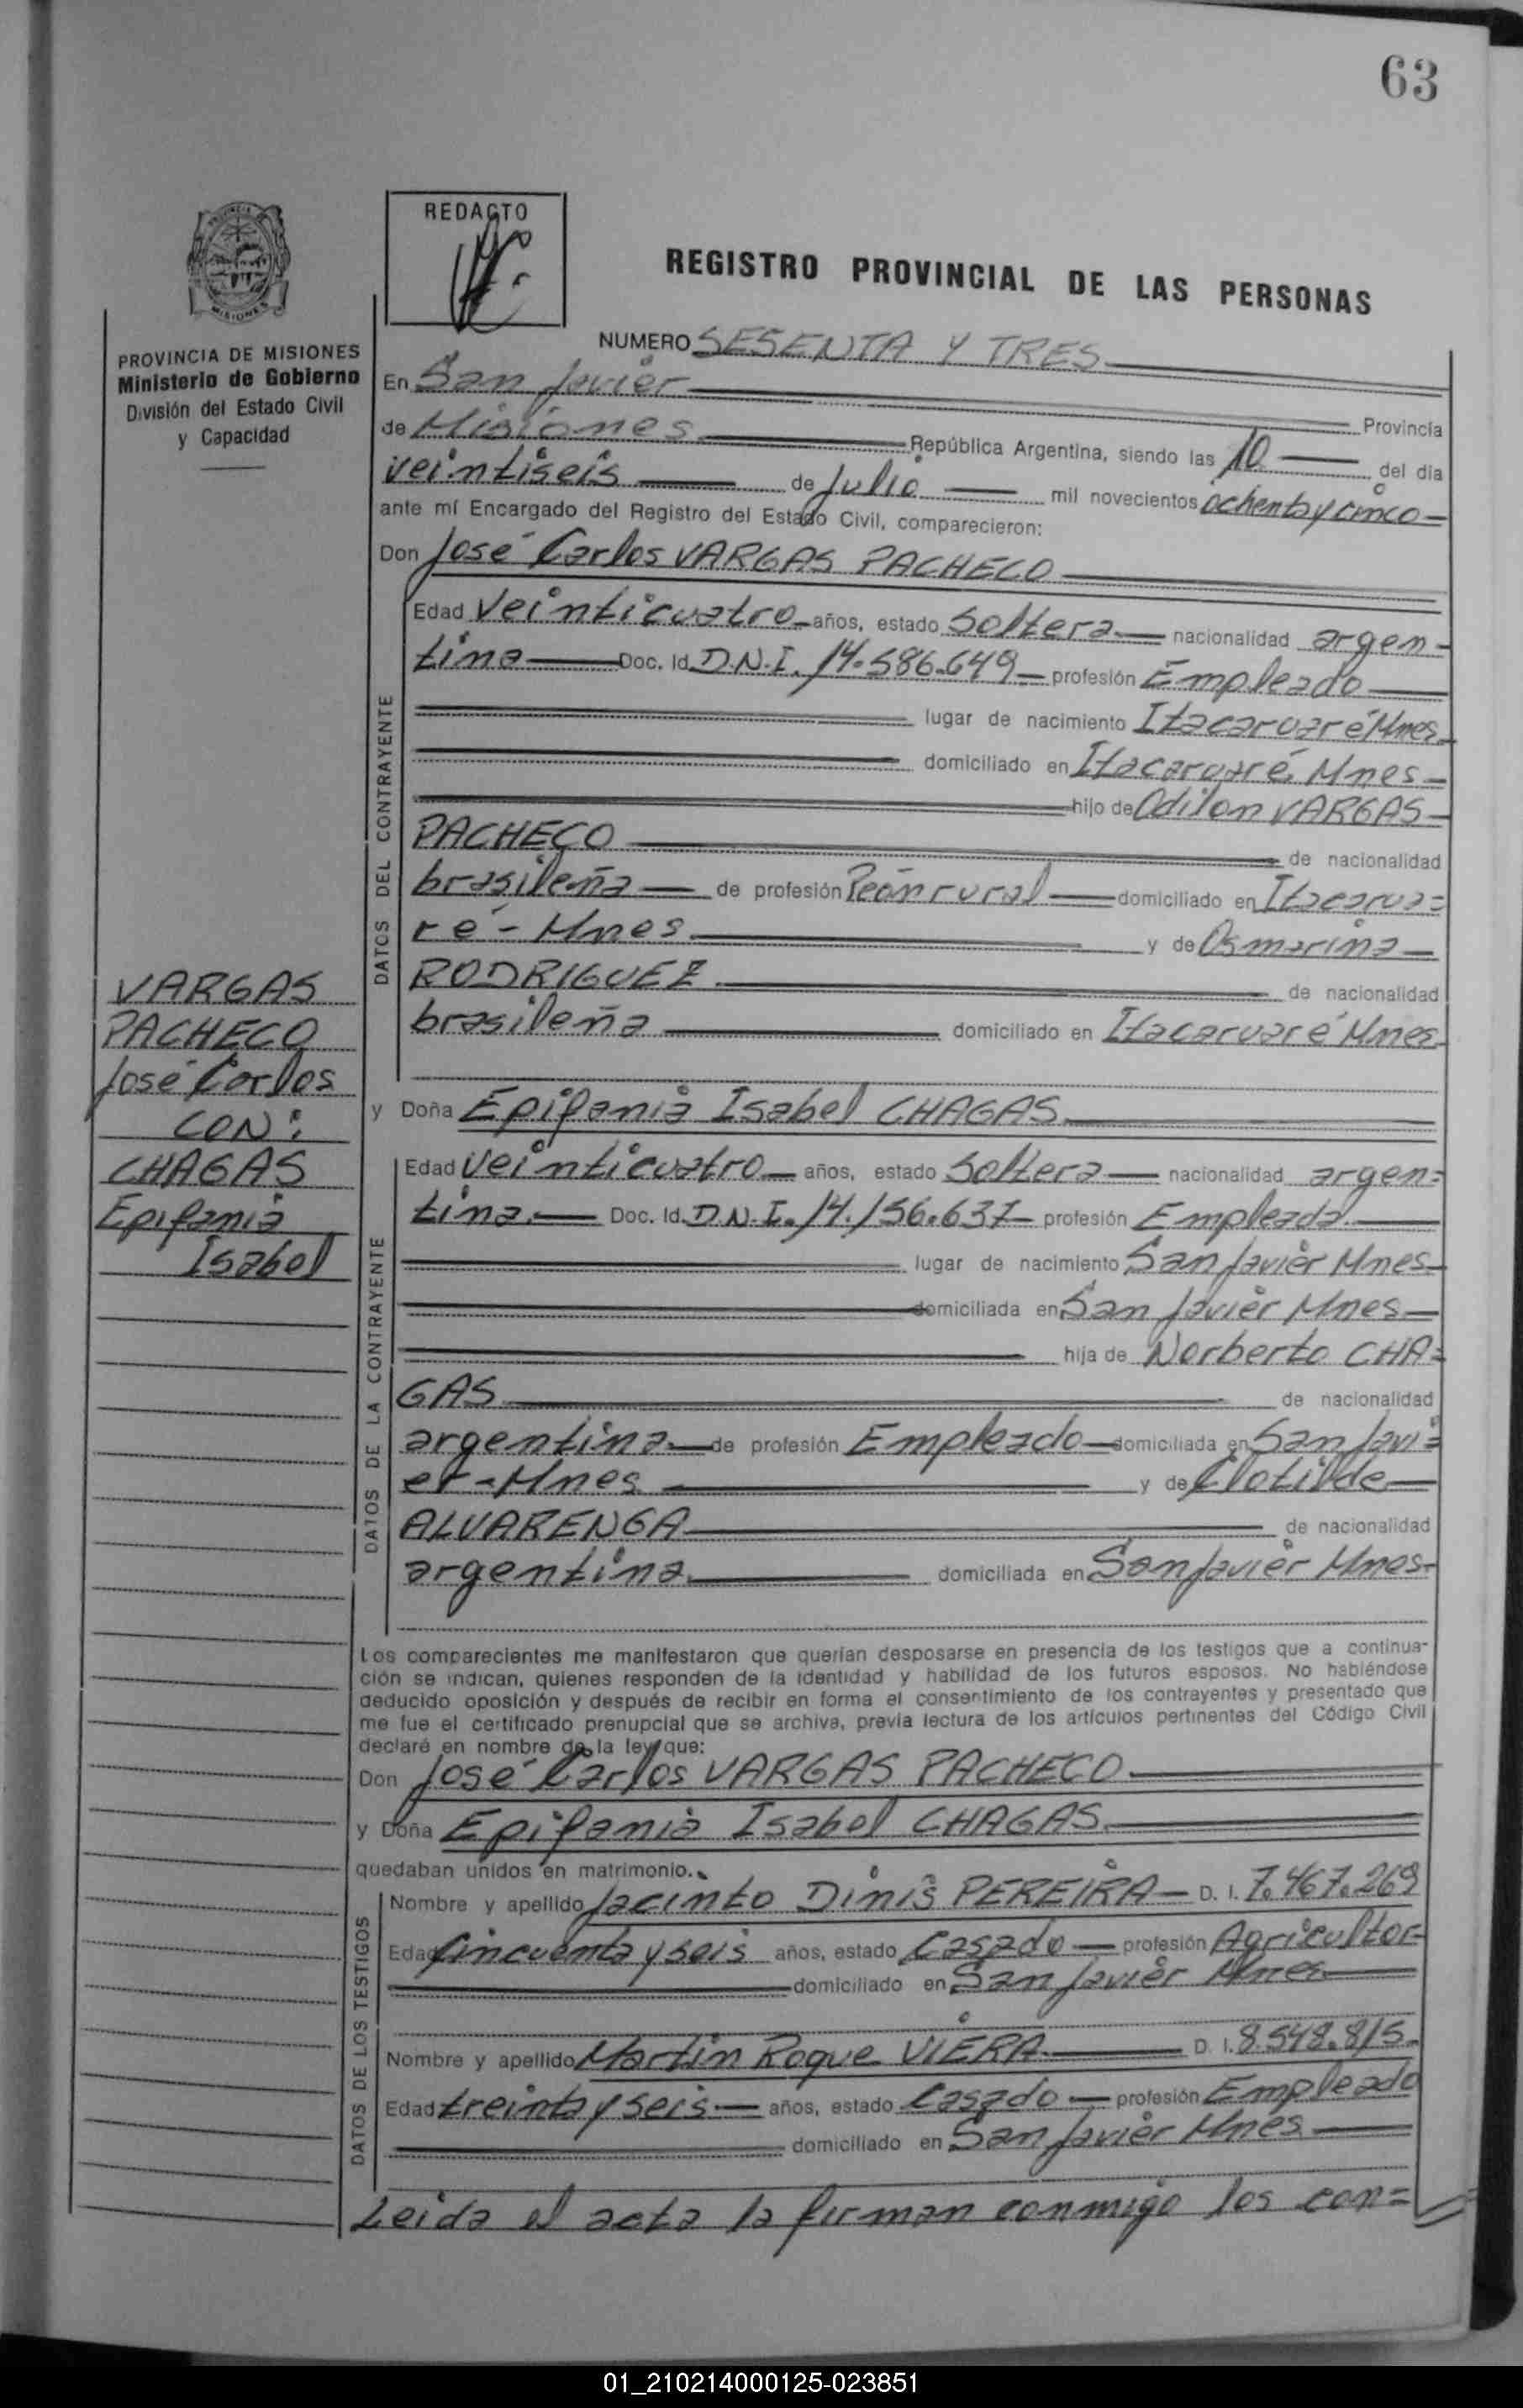 63
REDACTO
REGISTRO PROVINCIAL DE LAS PERSONAS
PROVINCIA DE MISIONES
Ministerio de Gobierno
División del Estado Civil
y Capacidad
NUMERO SESENTA Y TRES
En San Javier Provincia
de Misiones República Argentina, siendo las 10 del día
veintiseis de Julio mil novecientos ochenta y cinco
ante mí Encargado del Registro del Estado Civil, comparecieron:
Don José Carlos VARGAS PACHECO
DATOS DEL CONTRAYENTE
Edad Veinticuatro años, estado Soltera nacionalidad argen-
tina Doc. Id. D.N.I. 14.586.649 profesión Empleado
lugar de nacimiento Itacaruaré Mnes
domiciliado en Itacaruaré Mnes
hijo de Odilon VARGAS
PACHECO de nacionalidad
brasileña de profesión Peón rural domiciliado en Itacarua=
ré - Mnes y de Osmarina
RODRIGUEZ de nacionalidad
brasileña domiciliado en Itacaruaré Mnes
VARGAS
PACHECO
José Carlos
CON:
CHAGAS
Epifania
Isabel
y Doña Epifania Isabel CHAGAS
DATOS DE LA CONTRAYENTE
Edad Veinticuatro años, estado Soltera nacionalidad argen=
tina Doc. Id. D.N.I. 14.156.637 profesión Empleada
lugar de nacimiento San Javier Mnes
domiciliada en San Javier Mnes
hija de Norberto CHA=
GAS de nacionalidad
argentina de profesión Empleado domiciliada en San Javi=
er - Mnes y de Clotilde
ALVARENGA de nacionalidad
argentina domiciliada en San Javier Mnes
Los comparecientes me manifestaron que querían desposarse en presencia de los testigos que a continua-
ción se indican, quienes responden de la identidad y habilidad de los futuros esposos. No habiéndose
deducido oposición y después de recibir en forma el consentimiento de los contrayentes y presentado que
me fue el certificado prenupcial que se archiva, previa lectura de los artículos pertinentes del Código Civil
declaré en nombre de la ley que:
Don José Carlos VARGAS PACHECO
y Doña Epifania Isabel CHAGAS
quedaban unidos en matrimonio.
DATOS DE LOS TESTIGOS
Nombre y apellido Jacinto Dinis PEREIRA D. I. 7.467.269
Edad Cincuenta y seis años, estado Casado profesión Agricultor
domiciliado en San Javier Mnes
Nombre y apellido Martin Roque VIERA D. I. 8.548.815
Edad treinta y seis años, estado Casado profesión Empleado
domiciliado en San Javier Mnes
Leida el acta la firman conmigo los con=
01_210214000125-023851